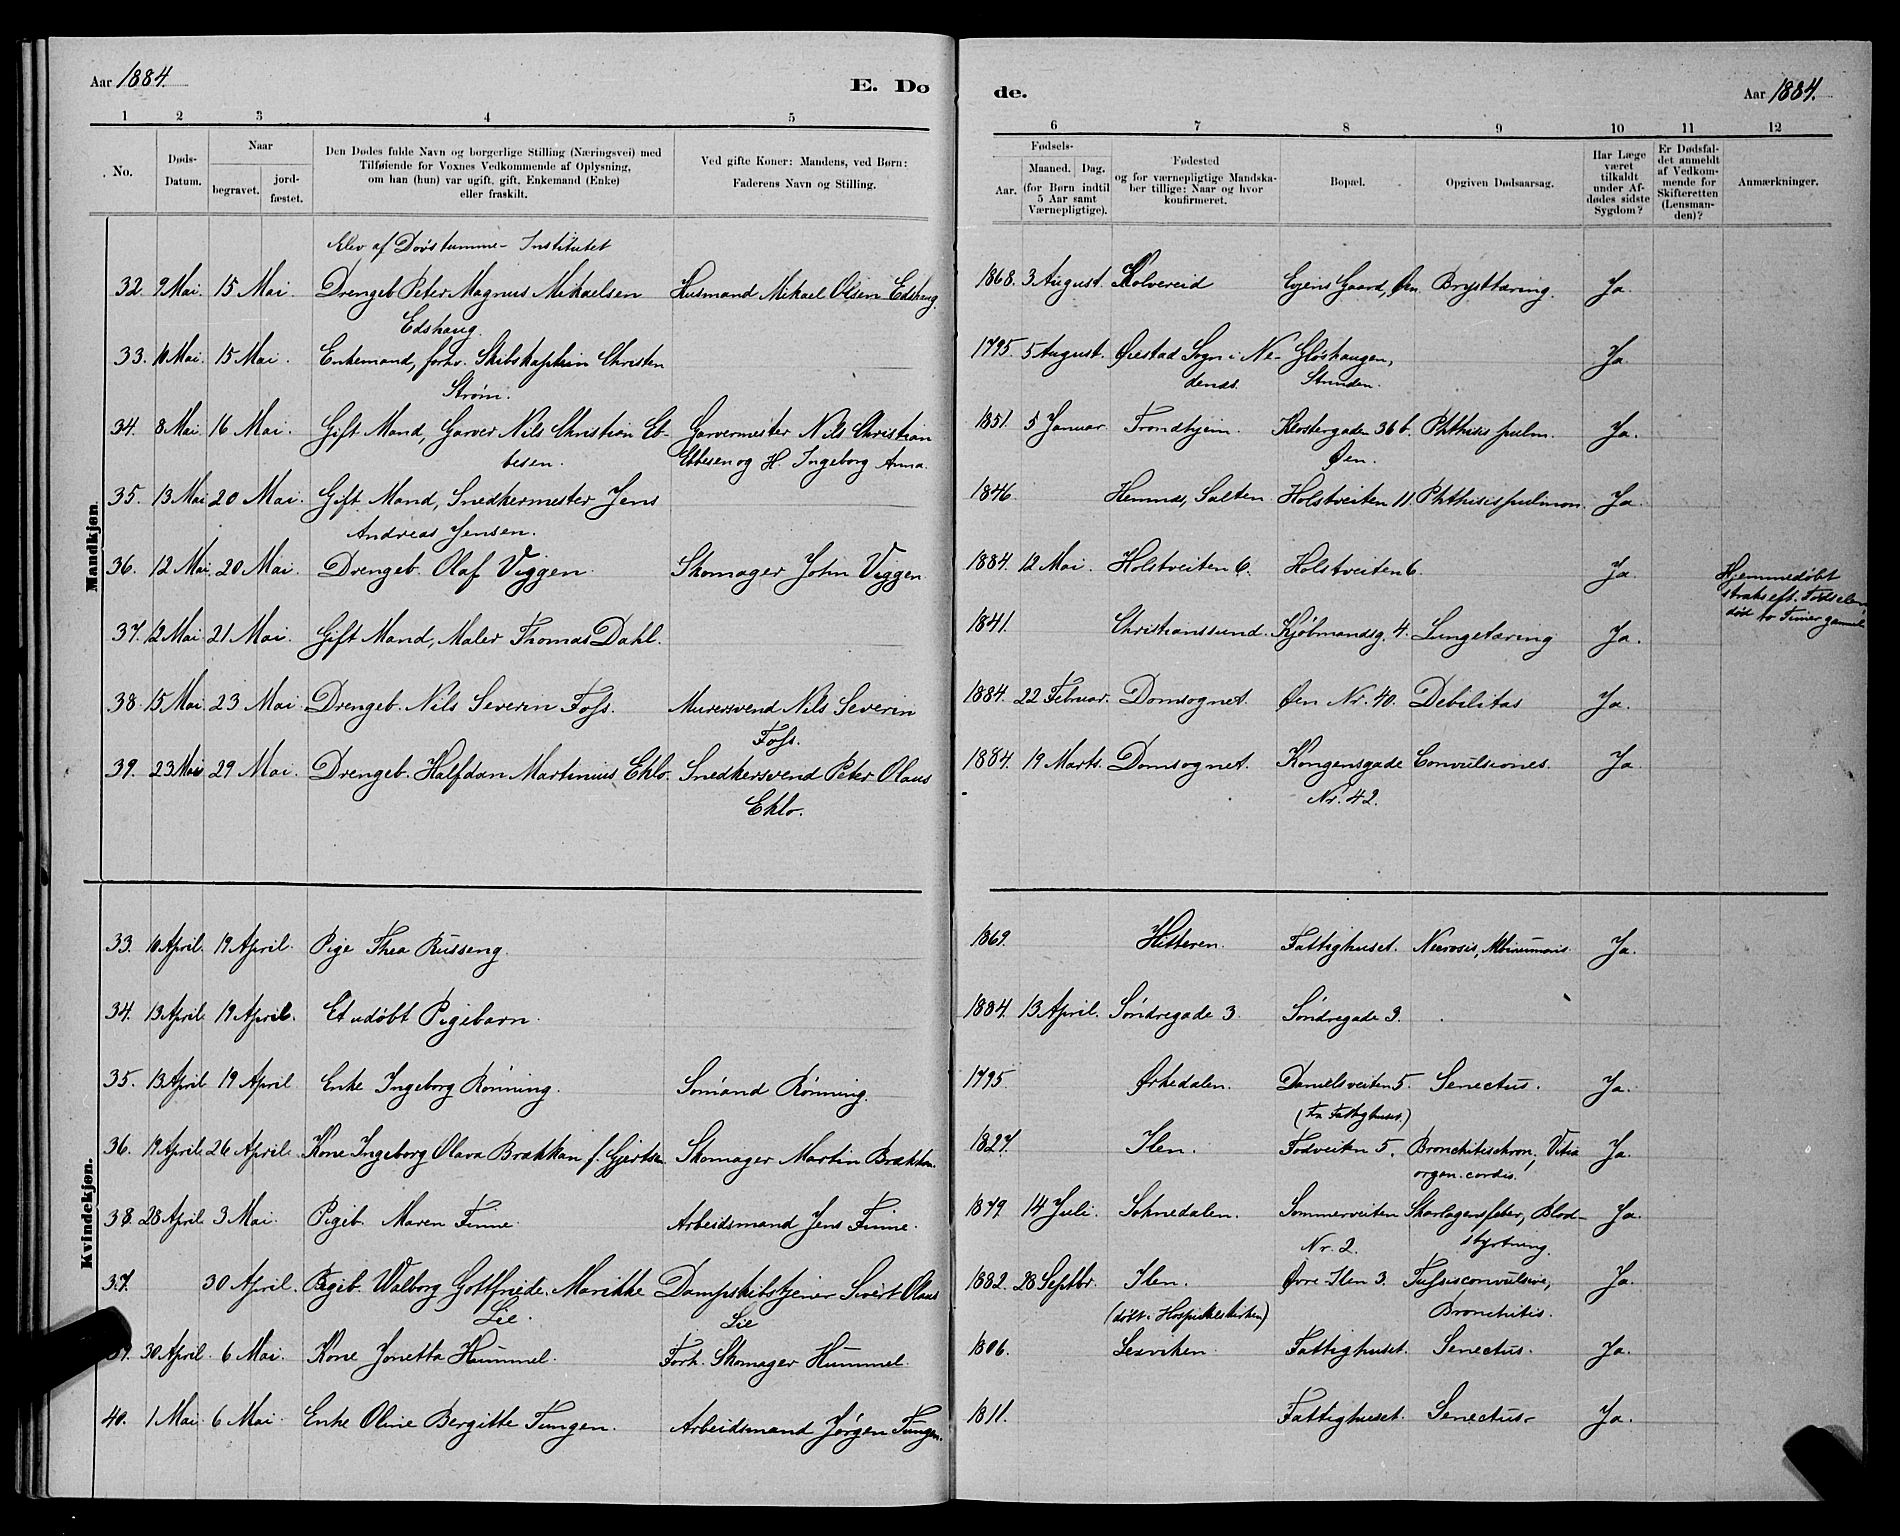 Aar 1884. E. Dø
1 2 3 4 5
No. Døds-Datum. Naar begravet. jordfæstet. Den Dødes fulde Navn og borgerlige Stilling (Næringsvei) med
Tilføiende for Voxnes Vedkommende af Oplysning,
om han (hun) var ugift, gift, Enkemand (Enke)
eller fraskilt.
Ved gifte Koner: Mandens, ved Børn:
Faderens Navn og Stilling.
Mandkjøn.
Elev af Døvstumme-Institutet
32. 9 Mai. 15 Mai Drengeb. Peter Magnus Mikaelsen Husmand Mikael Olsen Edshaug.
Edshaug.
33. 10 Mai. 15 Mai. Enkemand, forhv. Skibskaptein Christen
Strøm.
34. 8 Mai. 16 Mai. Gift Mand, Garver Nils Christian Eb- Garvermester Nils Christian
besen. Ebbesen og H. Ingeborg Anna.
35. 13 Mai 20 Mai. Gift Mand, Snedkermester Jens
Andreas Jensen.
36. 12 Mai. 20 Mai. Drengeb. Olaf Viggen. Skomager John Viggen.
37. 12 Mai 21 Mai. Gift Mand, Maler Thomas Dahl.
38. 15 Mai. 23 Mai Drengeb. Nils Severin Foss. Murersvend Nils Severin
Foss.
39. 23 Mai 29 Mai. Drengeb. Halfdan Martinius Eklo. Snedkersvend Peter Olaus
Eklo.
Kvindekjøn.
33. 10 April. 19 April. Pige Thea Russeng.
34. 13 April 19 April. Et udøbt Pigebarn.
35. 13 April 19 April Enke Ingeborg Rønning. Sømand Rønning.
36. 19 April. 26 April. Kone Ingeborg Olava Brækkan f. Gjertsen Skomager Martin Brækkan.
38. 28 April. 3 Mai. Pigeb. Maren Finne. Arbeidsmand Jens Finne.
37. 30 April. Pigeb. Walborg Gottfriede Marikke Dampskibstjener Sivert Olaus
Lie. Lie
39. 30 April. 6 Mai. Kone Jonetta Hummel. Forh. Skomager Hummel.
40. 1 Mai. 6 Mai. Enke Oline Bergitte Tungen. Arbeidsmand Jørgen Tungen.
de. Aar 1884.
6 7 8 9 10 11 12
Fødsels-
Aar. Maaned. Dag.
(for Børn indtil
5 Aar samt
Værnepligtige).
Fødested
og for værnepligtige Mandska-
ber tillige: Naar og hvor
konfirmeret.
Bopæl.
Opgiven Dødsaarsag.
Har Læge
været
tilkaldt
under Af-
dødes sidste
Sygdom?
Er Dødsfal-
det anmeldt
af Vedkom-
mende for
Skifteretten
(Lensman-
den)?
Anmærkninger.
1868. 3 August. Kolvereid Evjens Gaard, Øen Brysttæring. Ja.
1795. 5 August. Øiestad Sogn i Ne- Gløshaugen, Ja
denæs. Strinden.
1851. 5 Januar. Trondhjem. Klostergaden 36 b. Phthisis pulm. Ja.
Øen.
1846 Hemnæs, Salten Holstveiten 11. Phthisis pulmon. Ja.
1884. 12 Mai. Holstveiten 6. Holstveiten 6. Ja. Hjemmedøbt
straks eft. Fødselen,
død to Timer gammel
1841. Christianssund. Kjøbmandsg. 4. Lungetæring Ja.
1884. 22 Februar. Domsognet. Øen Nr. 40. Debilitas Ja.
1884. 19 Marts. Domsognet. Kongensgade Convulsiones. Ja.
Nr. 42.
1869. Hitteren. Fattighuset. Necrosis, Ja.
1884. 13 April. Søndregade 3. Søndregade 3.
1795. Ørkedalen. Danielsveiten 5. Senectus. Ja.
(Fra Fattighuset.)
1827. Ilen. Fodveiten 5. Bronchitis chron, Vitia Ja.
organ. cordis.
1879. 14 Juli. Soknedalen. Sommerveiten Skarlagensfeber, Blod- Ja.
Nr. 2. styrtning.
1882. 28 Septbr. Ilen. Øvre Ilen 3. Tussis convulsiva, Ja.
(døbt i Hospitalskirken) Bronchitis.
1806. Lexviken. Fattighuset. Senectus. Ja.
1811. Fattighuset. Senectus. Ja.